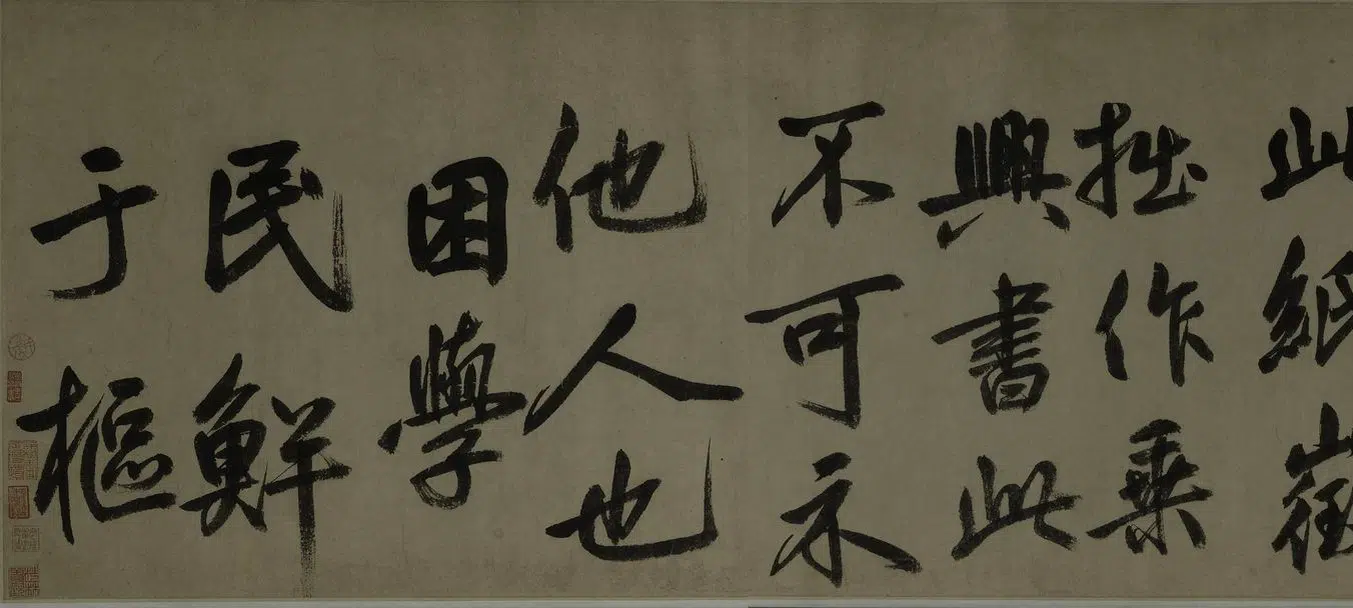 此紙徵
拙作乘
興書此
不可示
他人也
困學
民鮮
于樞